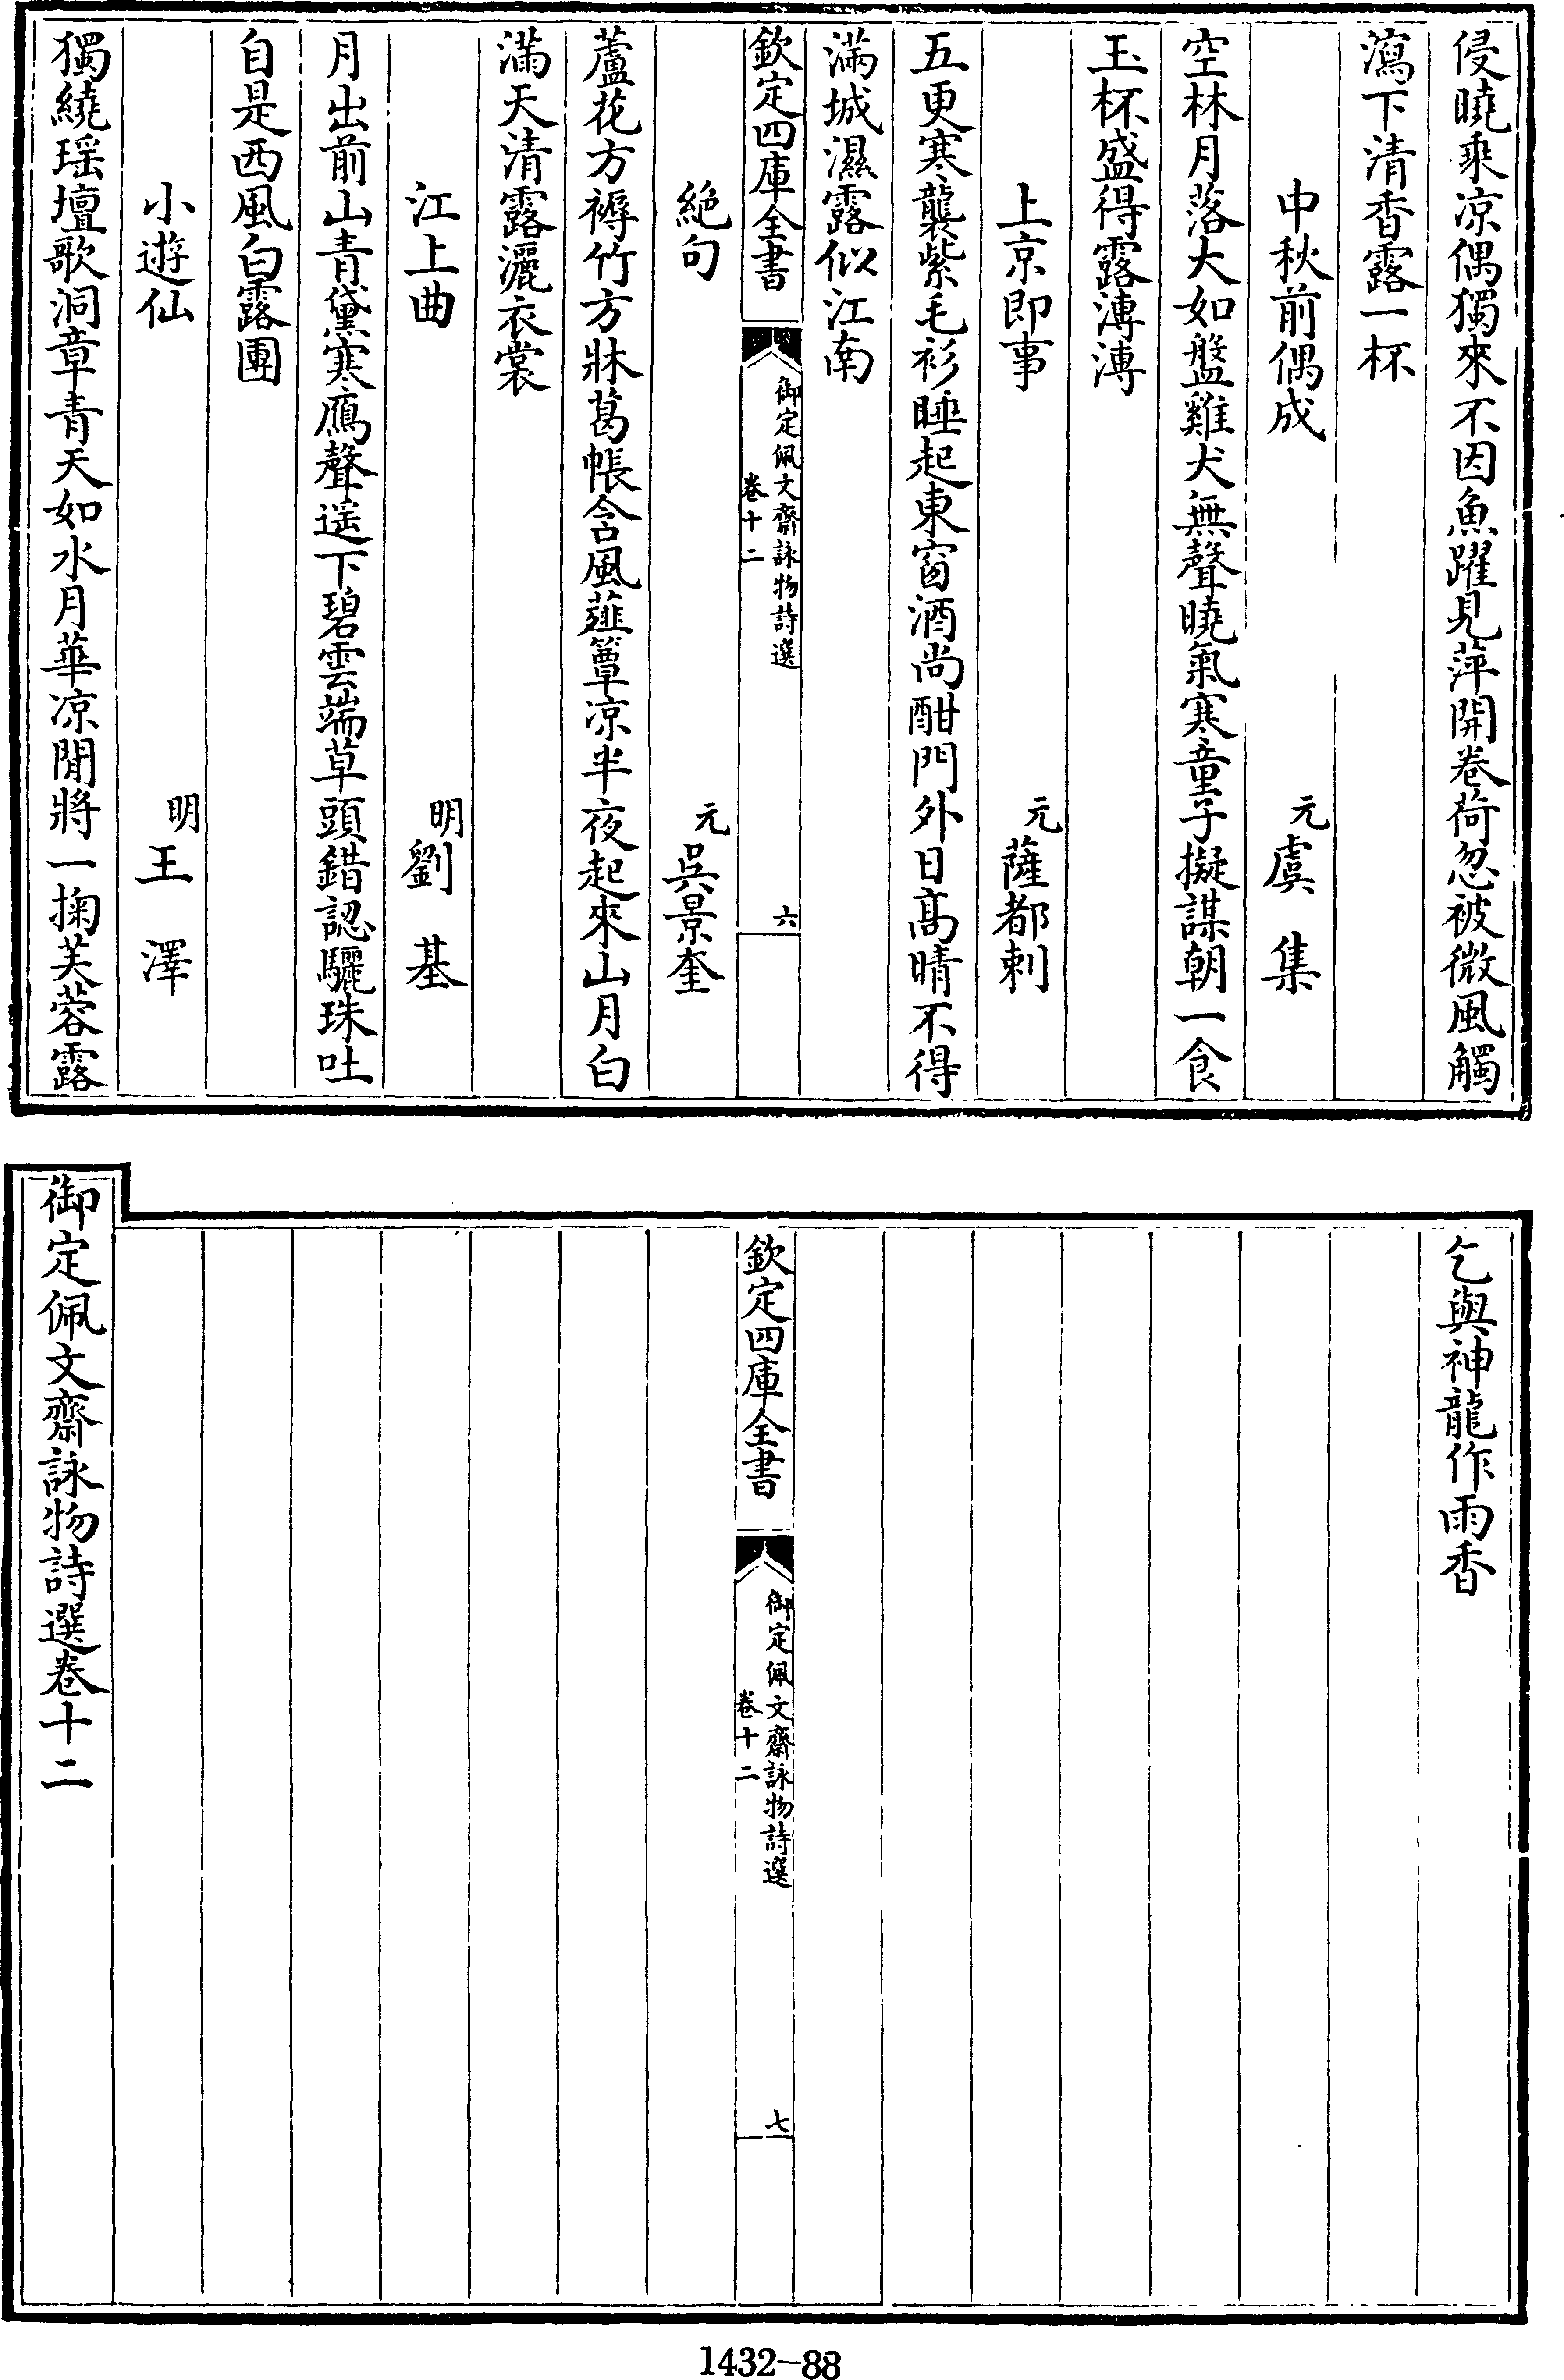 侵曉乘凉偶獨來不因魚躍見萍開卷荷忽被微風觸
瀉下清香露一杯
中秋前偶成
元虞集
空林月落大如盤雞犬無聲曉氣寒童子擬謀朝一食
玉杯盛得露漙漙
上京即事
元薩都剌
五更寒襲紫毛衫睡起東窗酒尚酣門外日髙晴不得
滿城濕露似江南
欽定四庫全書
御定佩文齋詠物詩選
卷十二
六
絶句
元吳景奎
蘆花方褥竹方牀葛帳含風薤簟凉半夜起來山月白
滿天清露灑衣裳
江上曲
明劉基
月出前山青黛寒鴈聲遥下碧雲端草頭錯認驪珠吐
自是西風白露團
小遊仙
明王澤
獨繞瑶壇歌洞章青天如水月華凉閒將一掬芙蓉露
乞與神龍作雨香
欽定四庫全書
御定佩文齋詠物詩選
卷十二
七
御定佩文齋詠物詩選卷十二
1432-88